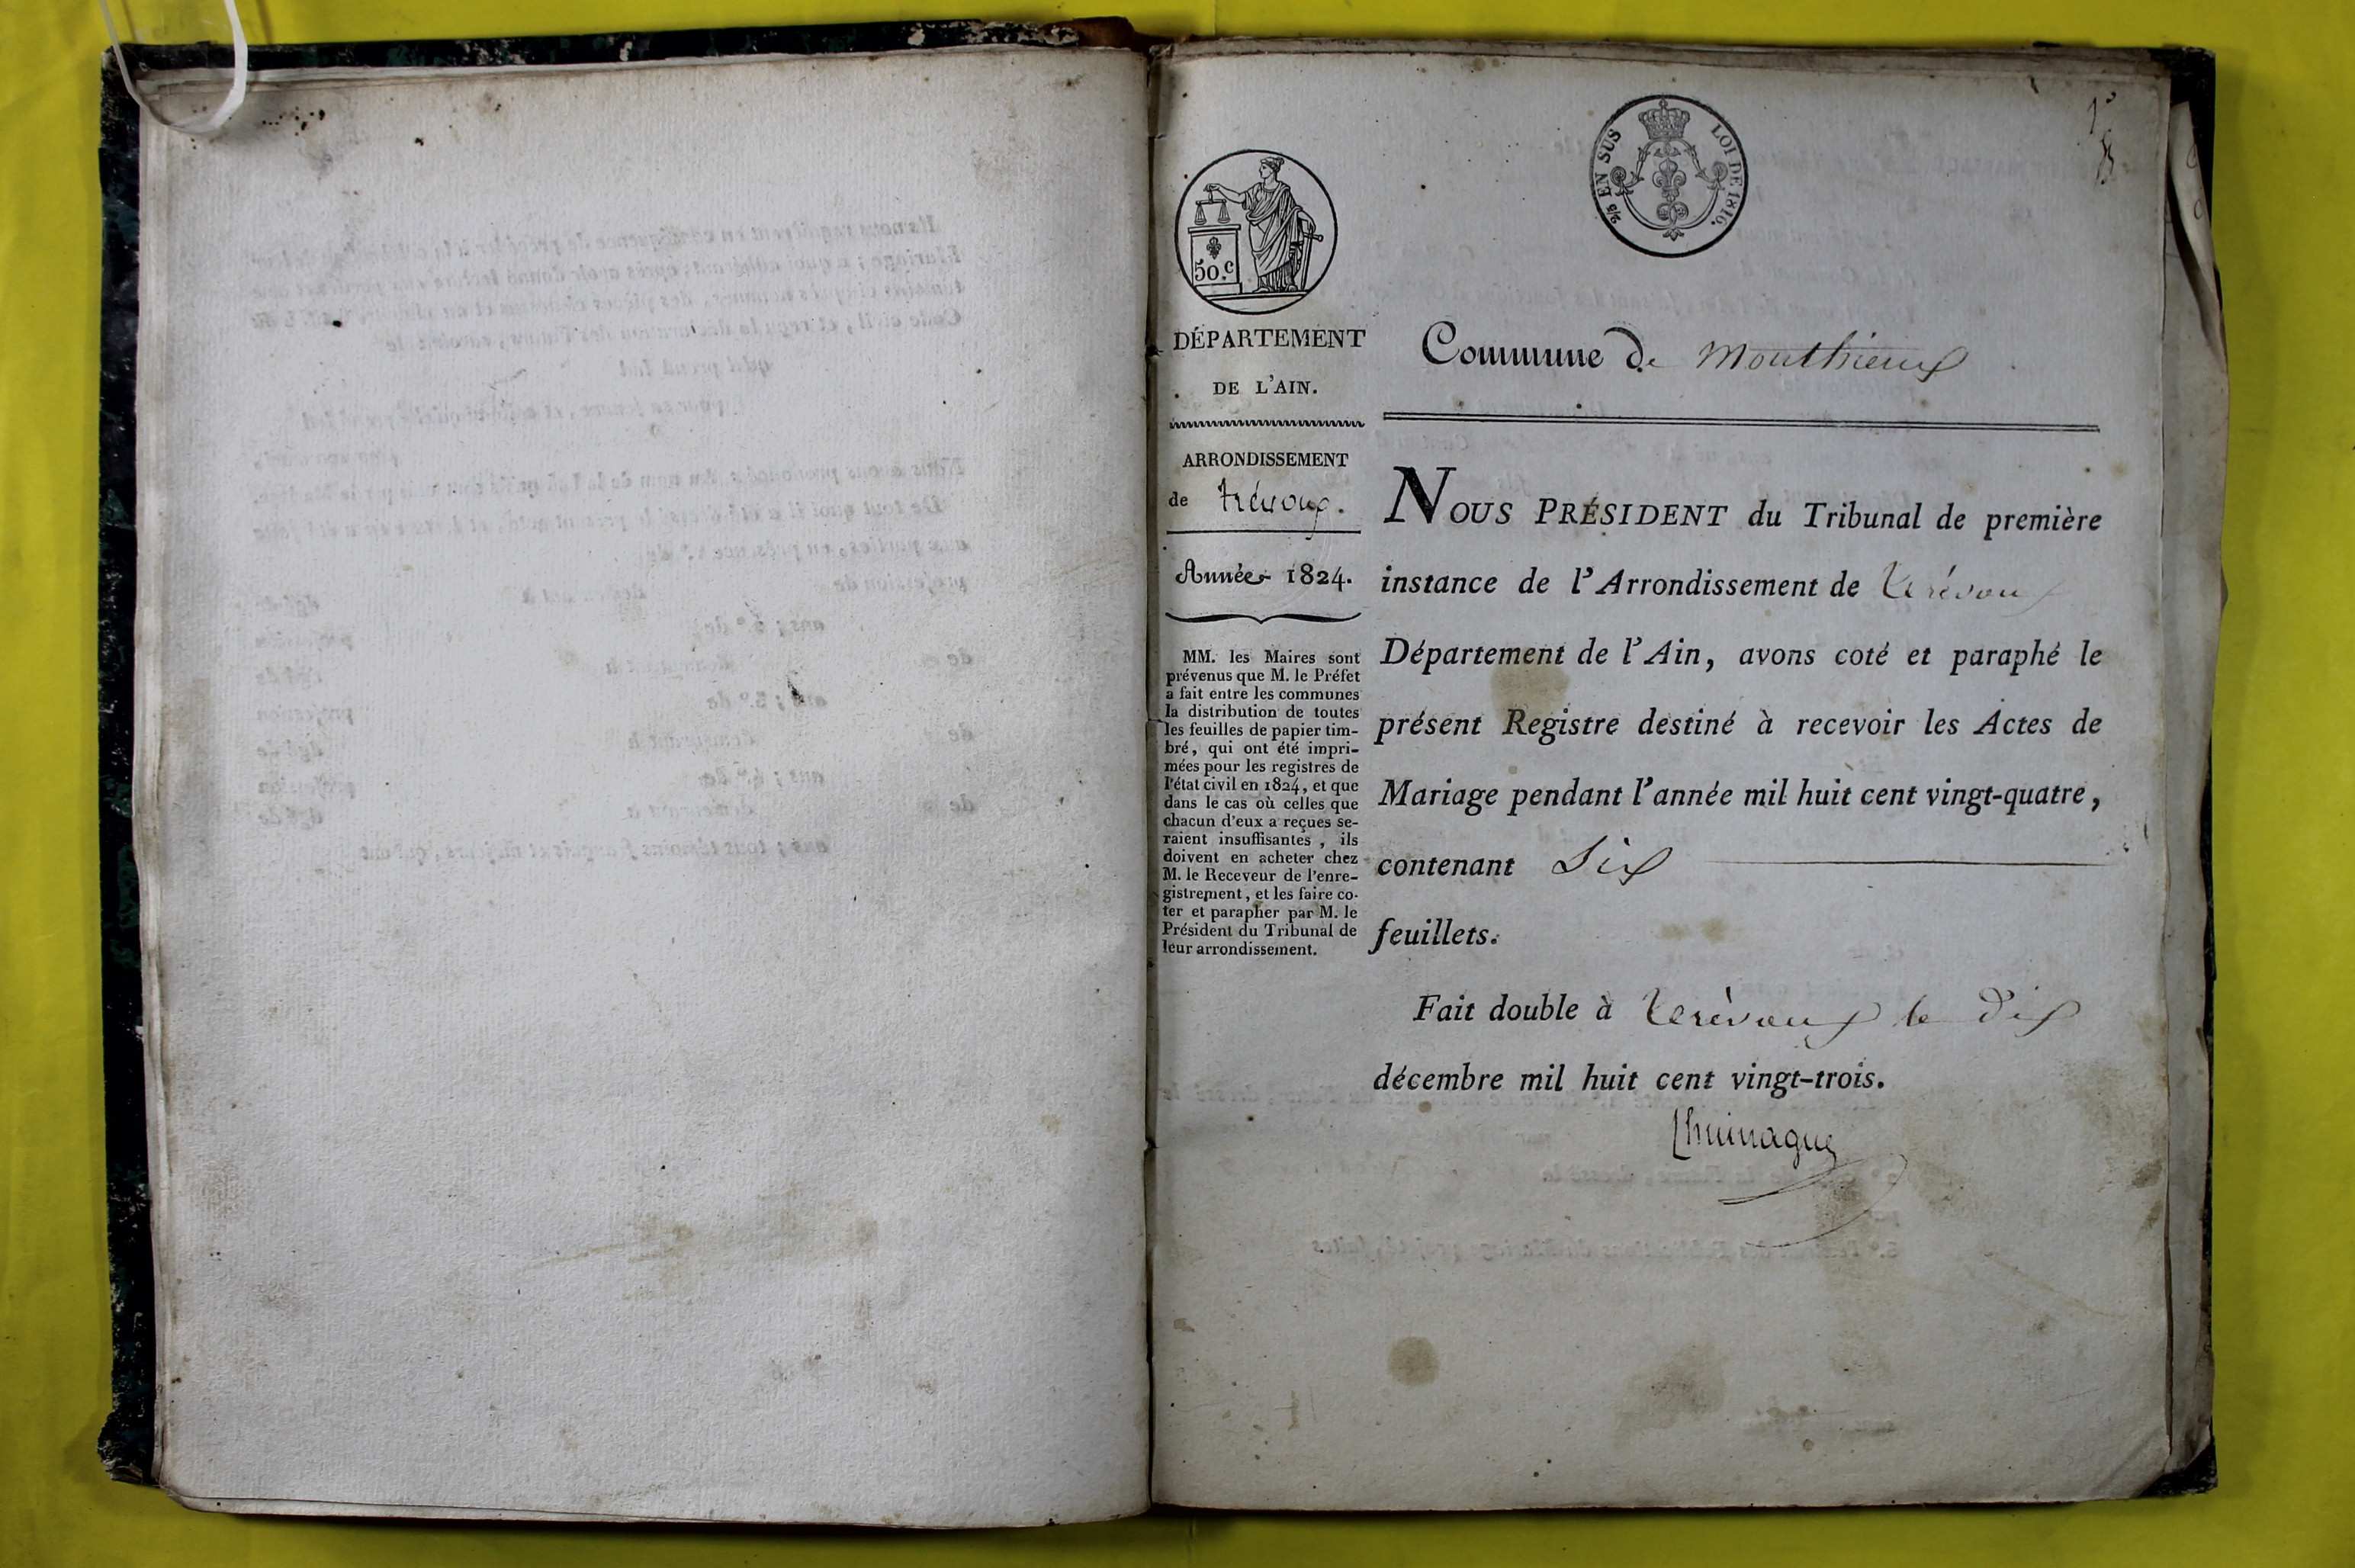 2/5 EN SUS
LOI DE 1816.
1º
50.c
DÉPARTEMENT
DE L'AIN.
ARRONDISSEMENT
de trévoux.
Année 1824.
MM. les Maires sont
prévenus que M. le Préfet
a fait entre les communes
la distribution de toutes
les feuilles de papier tim-
bré, qui ont été impri-
mées pour les registres de
l'état civil en 1824, et que
dans le cas où celles que
chacun d'eux a reçues se-
raient insuffisantes, ils
doivent en acheter chez
M. le Receveur de l'enre-
gistrement, et les faire co-
ter et parapher par M. le
Président du Tribunal de
leur arrondissement.
Commune de Monthieux
NOUS PRÉSIDENT du Tribunal de première
instance de l'Arrondissement de trévoux
Département de l'Ain, avons coté et paraphé le
présent Registre destiné à recevoir les Actes de
Mariage pendant l'année mil huit cent vingt-quatre,
contenant Six
feuillets.
Fait double à trévoux le dix
décembre mil huit cent vingt-trois.